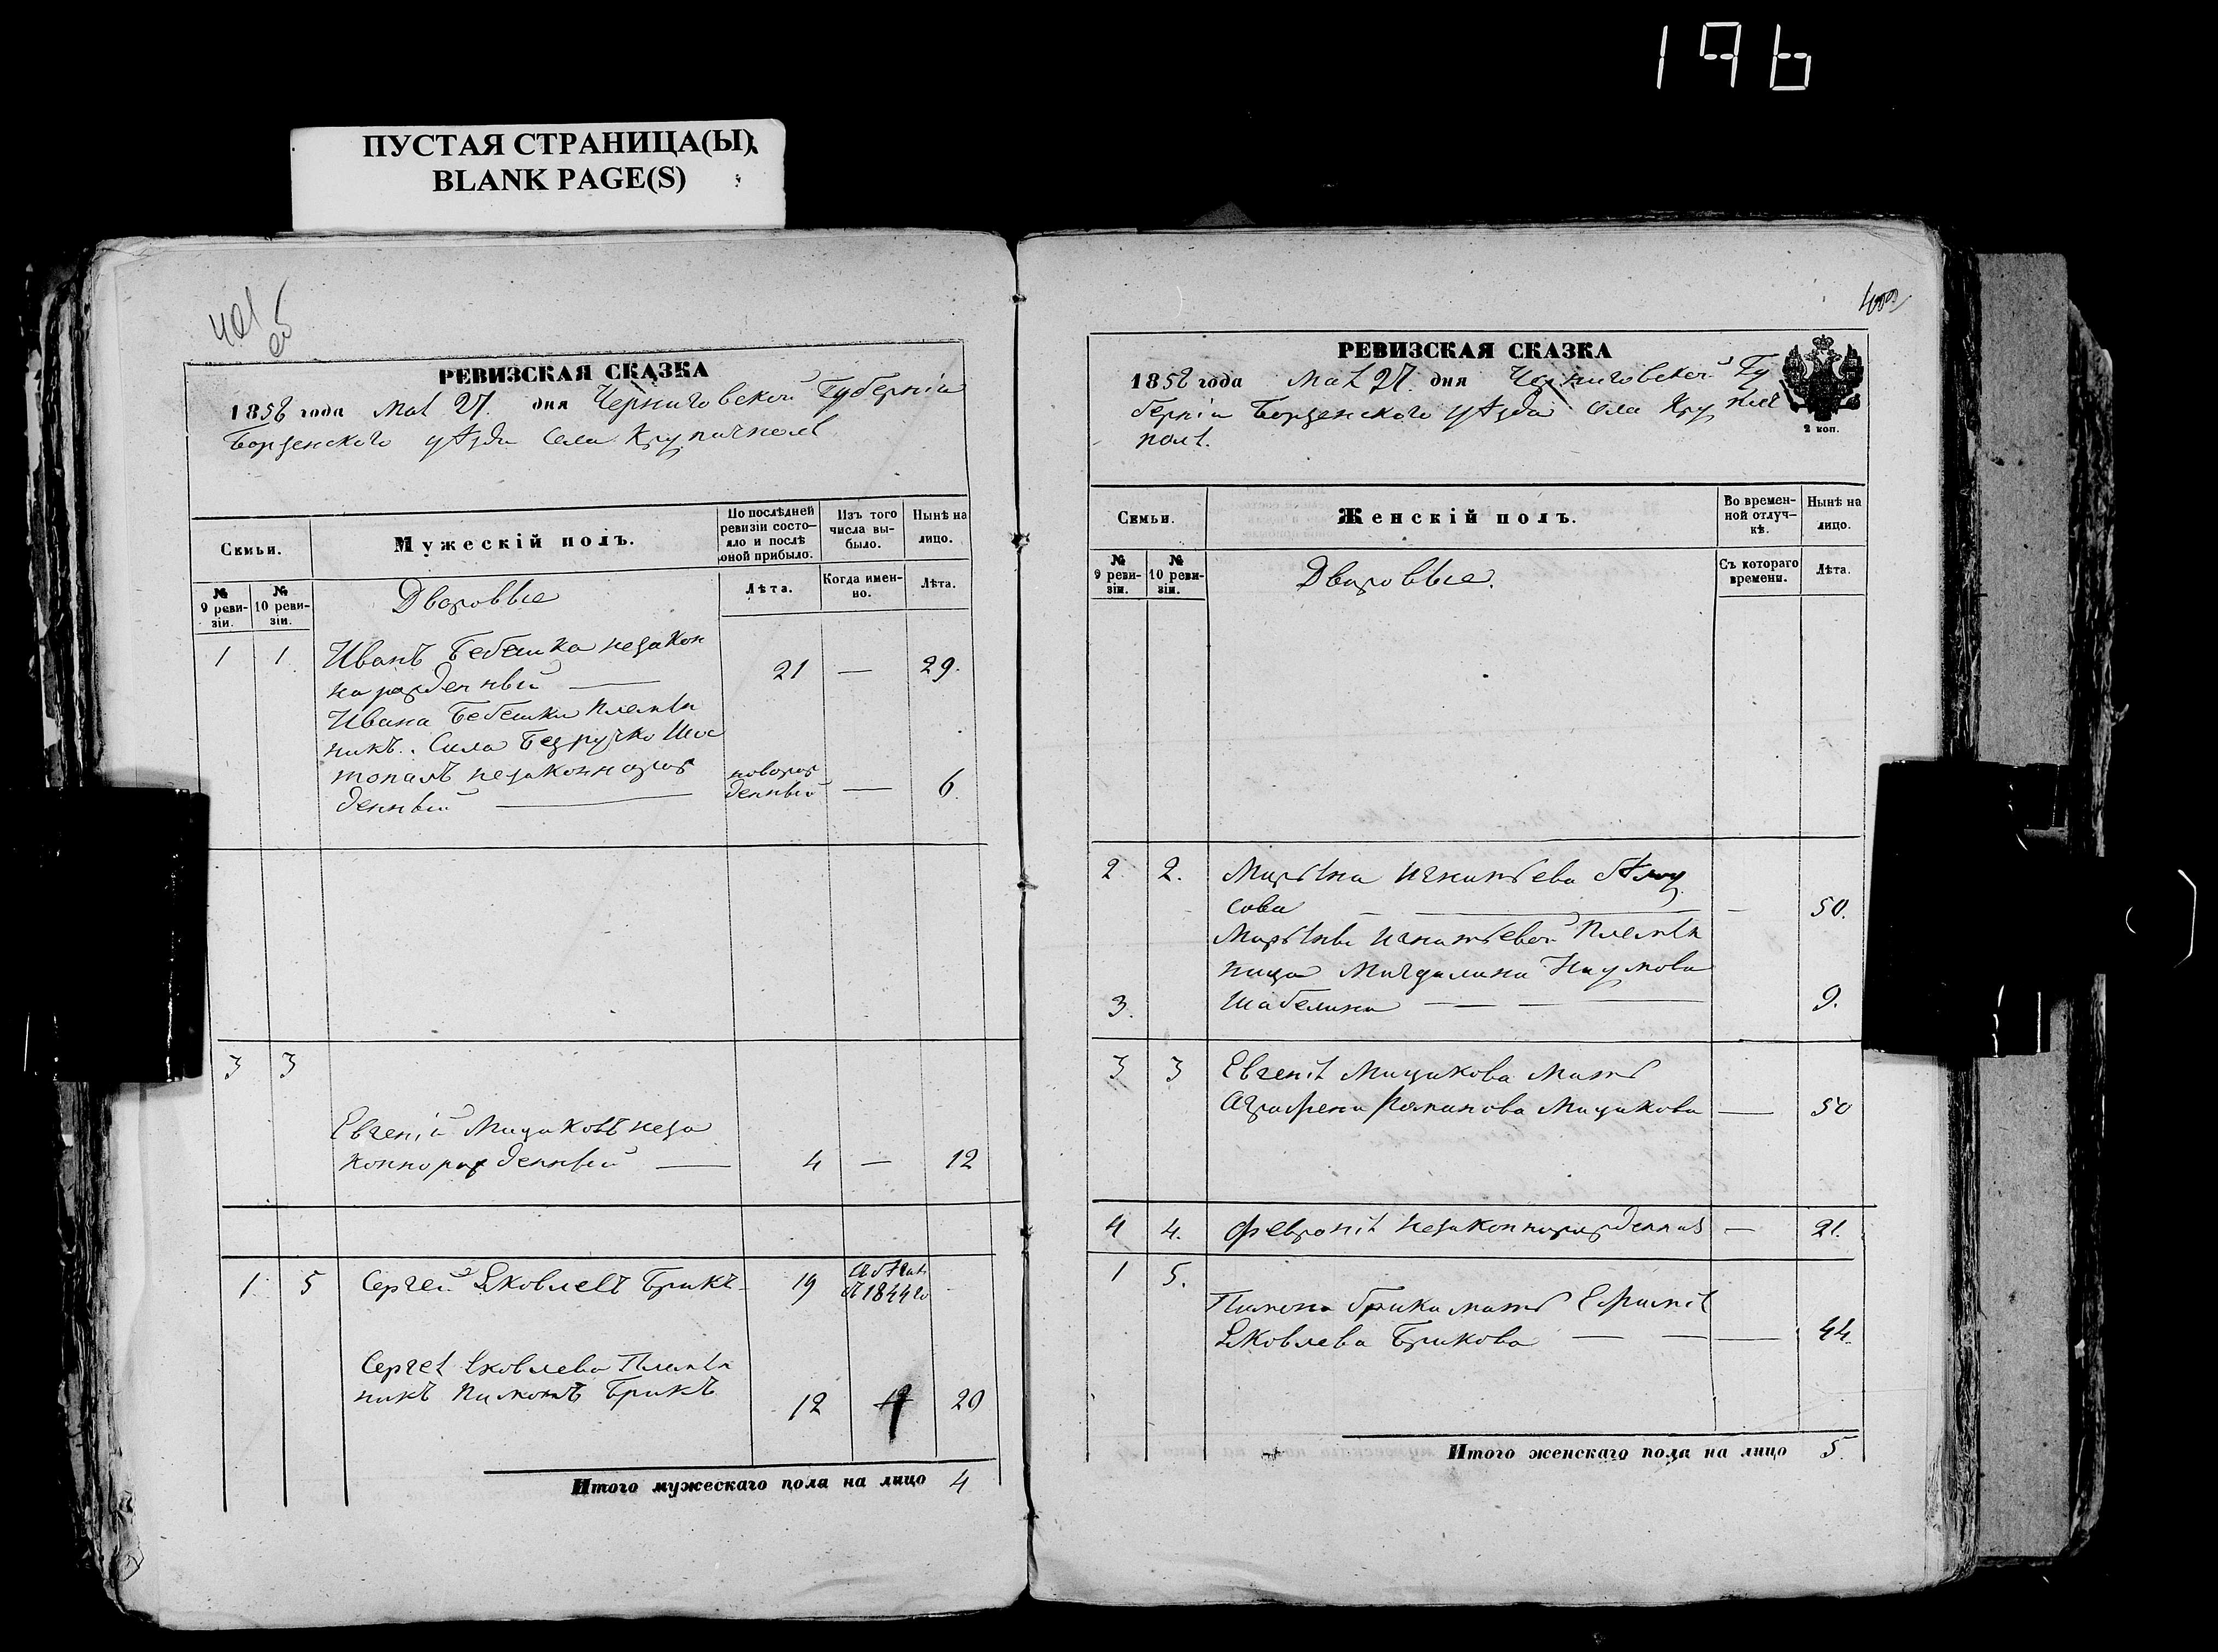 196
ПУСТАЯ СТРАНИЦА(Ы)
BLANK PAGE(S)
401
об
РЕВИЗСКАЯ СКАЗКА
1858 года Мая 27. дня Черниговской Губерніи
Борзенского уѣзда Села Крупичполя
Семьи.
Мужескій полъ.
По послѣдней ревизіи состо-
яло и послѣ
оной прибыло.
Изъ того
числа вы-
было.
Нынѣ на
лицо.
№
9 реви-
зіи.
№
10 реви-
зіи.
Дворовые
Лѣта.
Когда имен-
но.
Лѣта.
1 1 Иванъ Бебешка незакон
норожденный — 21 — 29.
Ивана Бебешки племян
никъ. Сила Безручко Шос
топалъ незаконнорож новорож
денный — денный — 6.
3 3
Евгеній Мицыковъ неза
коннорожденный — 4 — 12
1. 5 Сергей Яковлевъ Брикъ 19 1844го
Сергея Яковлева Племян
никъ Пимонъ Брикъ 12 20
Итого мужескаго пола на лицо 4
РЕВИЗСКАЯ СКАЗКА
1858 года Мая 27. дня Черниговской Гу
берніи Борзенского уѣзда Села Крупич
поля.
2 коп.
Семьи.
Женскій полъ.
Во времен-
ной отлуч-
кѣ.
Нынѣ на
лицо.
№
9 реви-
зіи.
№
10 реви-
зіи.
Дворовые.
Съ котораго
времени.
Лѣта.
2 2. Марьяна Игнатьева
сова — 50.
Марьяны Игнатьевой Племян
ница Магдалина Наумова
3. Шабелина — — 9.
3 3 Евгенія Мицыкова Мать
Аграфена Романова Мицыкова — 50
4 4. Февронія Незаконнорожденная — 21.
1 5.
Пимона Брика мать Ефимія
Яковлева Брикова — — 44.
Итого женскаго пола на лицо 5.